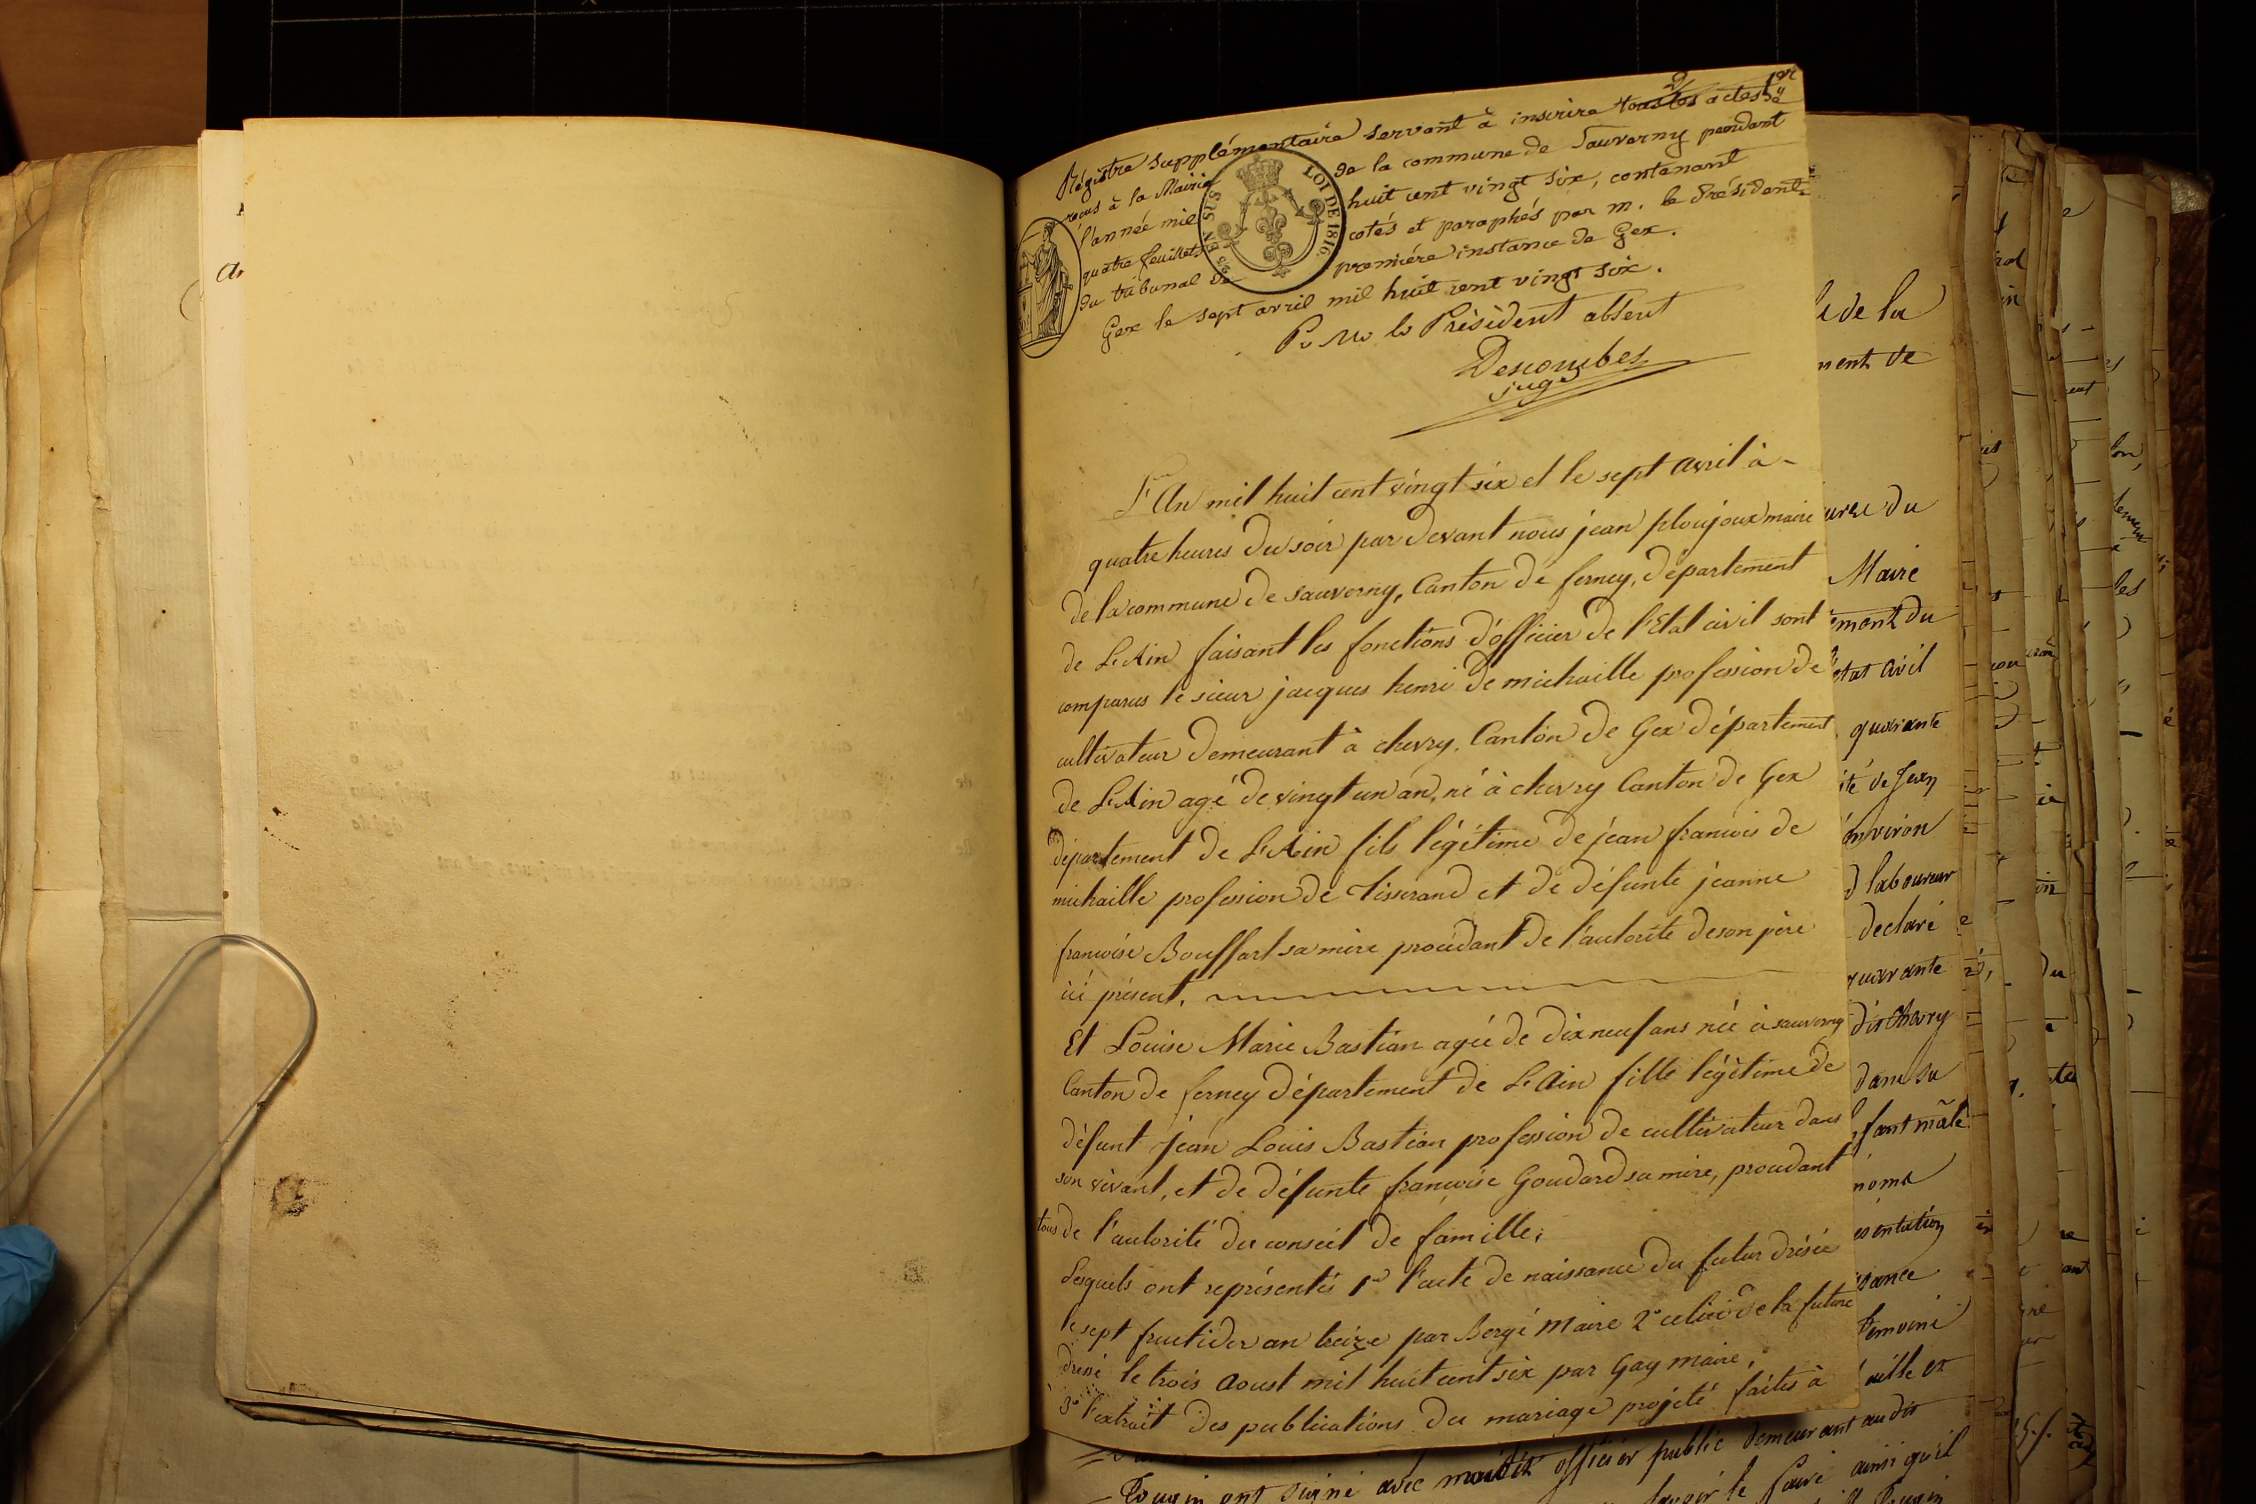 2 1er
Régistre supplémentaire servant à inscrire tous les actes
reçus à la Mairie de la commune de Sauverny pendant
l'année mil huit cent vingt six, contenant
quatre feuillets cotés et paraphés par m. le Président
du tribunal de première instance de Gex.
Gex le sept avril mil huit cent vingt six.
Pr Mr le Président absent
Descombes
juge
EN SUS LOI DE 1816
L'An mil huit cent vingt six et le sept avril à
quatre heures du soir par devant nous jean ploujoux maire
de la commune de sauverny, Canton de ferney, département
de L'Ain faisant les fonctions d'officier de l'Etat civil sont
comparus le sieur jacques henri de michaille profession de
cultivateur demeurant à chevry, Canton de Gex département
de L'Ain agé de vingt un an, né à chevry Canton de Gex
département de L'Ain fils légitime de jean francois de
michaille profession de tisserand et de défunte jeanne
francoise Bouffart sa mère procédant de l'autorité de son père
ici présent.
Et Louise Marie Bastian agée de dix neuf ans née à sauverny
Canton de ferney département de L'Ain fille légitime de
défunt jean Louis Bastian profession de cultivateur dans
son vivant, et de défunte françoise Goudard sa mère, procédant
tous de l'autorité du conseil de famille;
Lesquels ont représentés 1º l'acte de naissance du futur dressé
le sept fructidor an treize par Bergé Maire 2º celui de la future
dressé le trois aoust mil huit cent six par Gay maire,
3º l'extrait des publications du mariage projeté faites à
de la
ment de
du
Maire
ement du
etat civil
quarante
té de Jean
environ
laboureur
declaré
quarante
dit Chevry
dans sa
fant mâle
noms
ésentation
témoins
officier public demeurant au dit
ont signé avec
ainsi qu'il